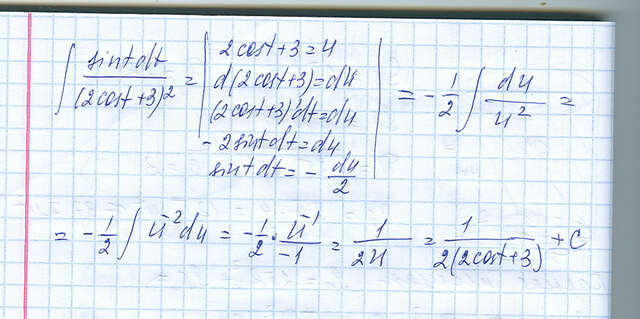 ∫ sint dt / (2cost+3)² = | 2cost+3=u
d(2cost+3)=du
(2cost+3)'dt=du
-2sint dt=du
sint dt= - du/2 | = - 1/2 ∫ du/u² =
= - 1/2 ∫ u⁻² du = - 1/2 · u⁻¹/-1 = 1/2u = 1/2(2cost+3) + C